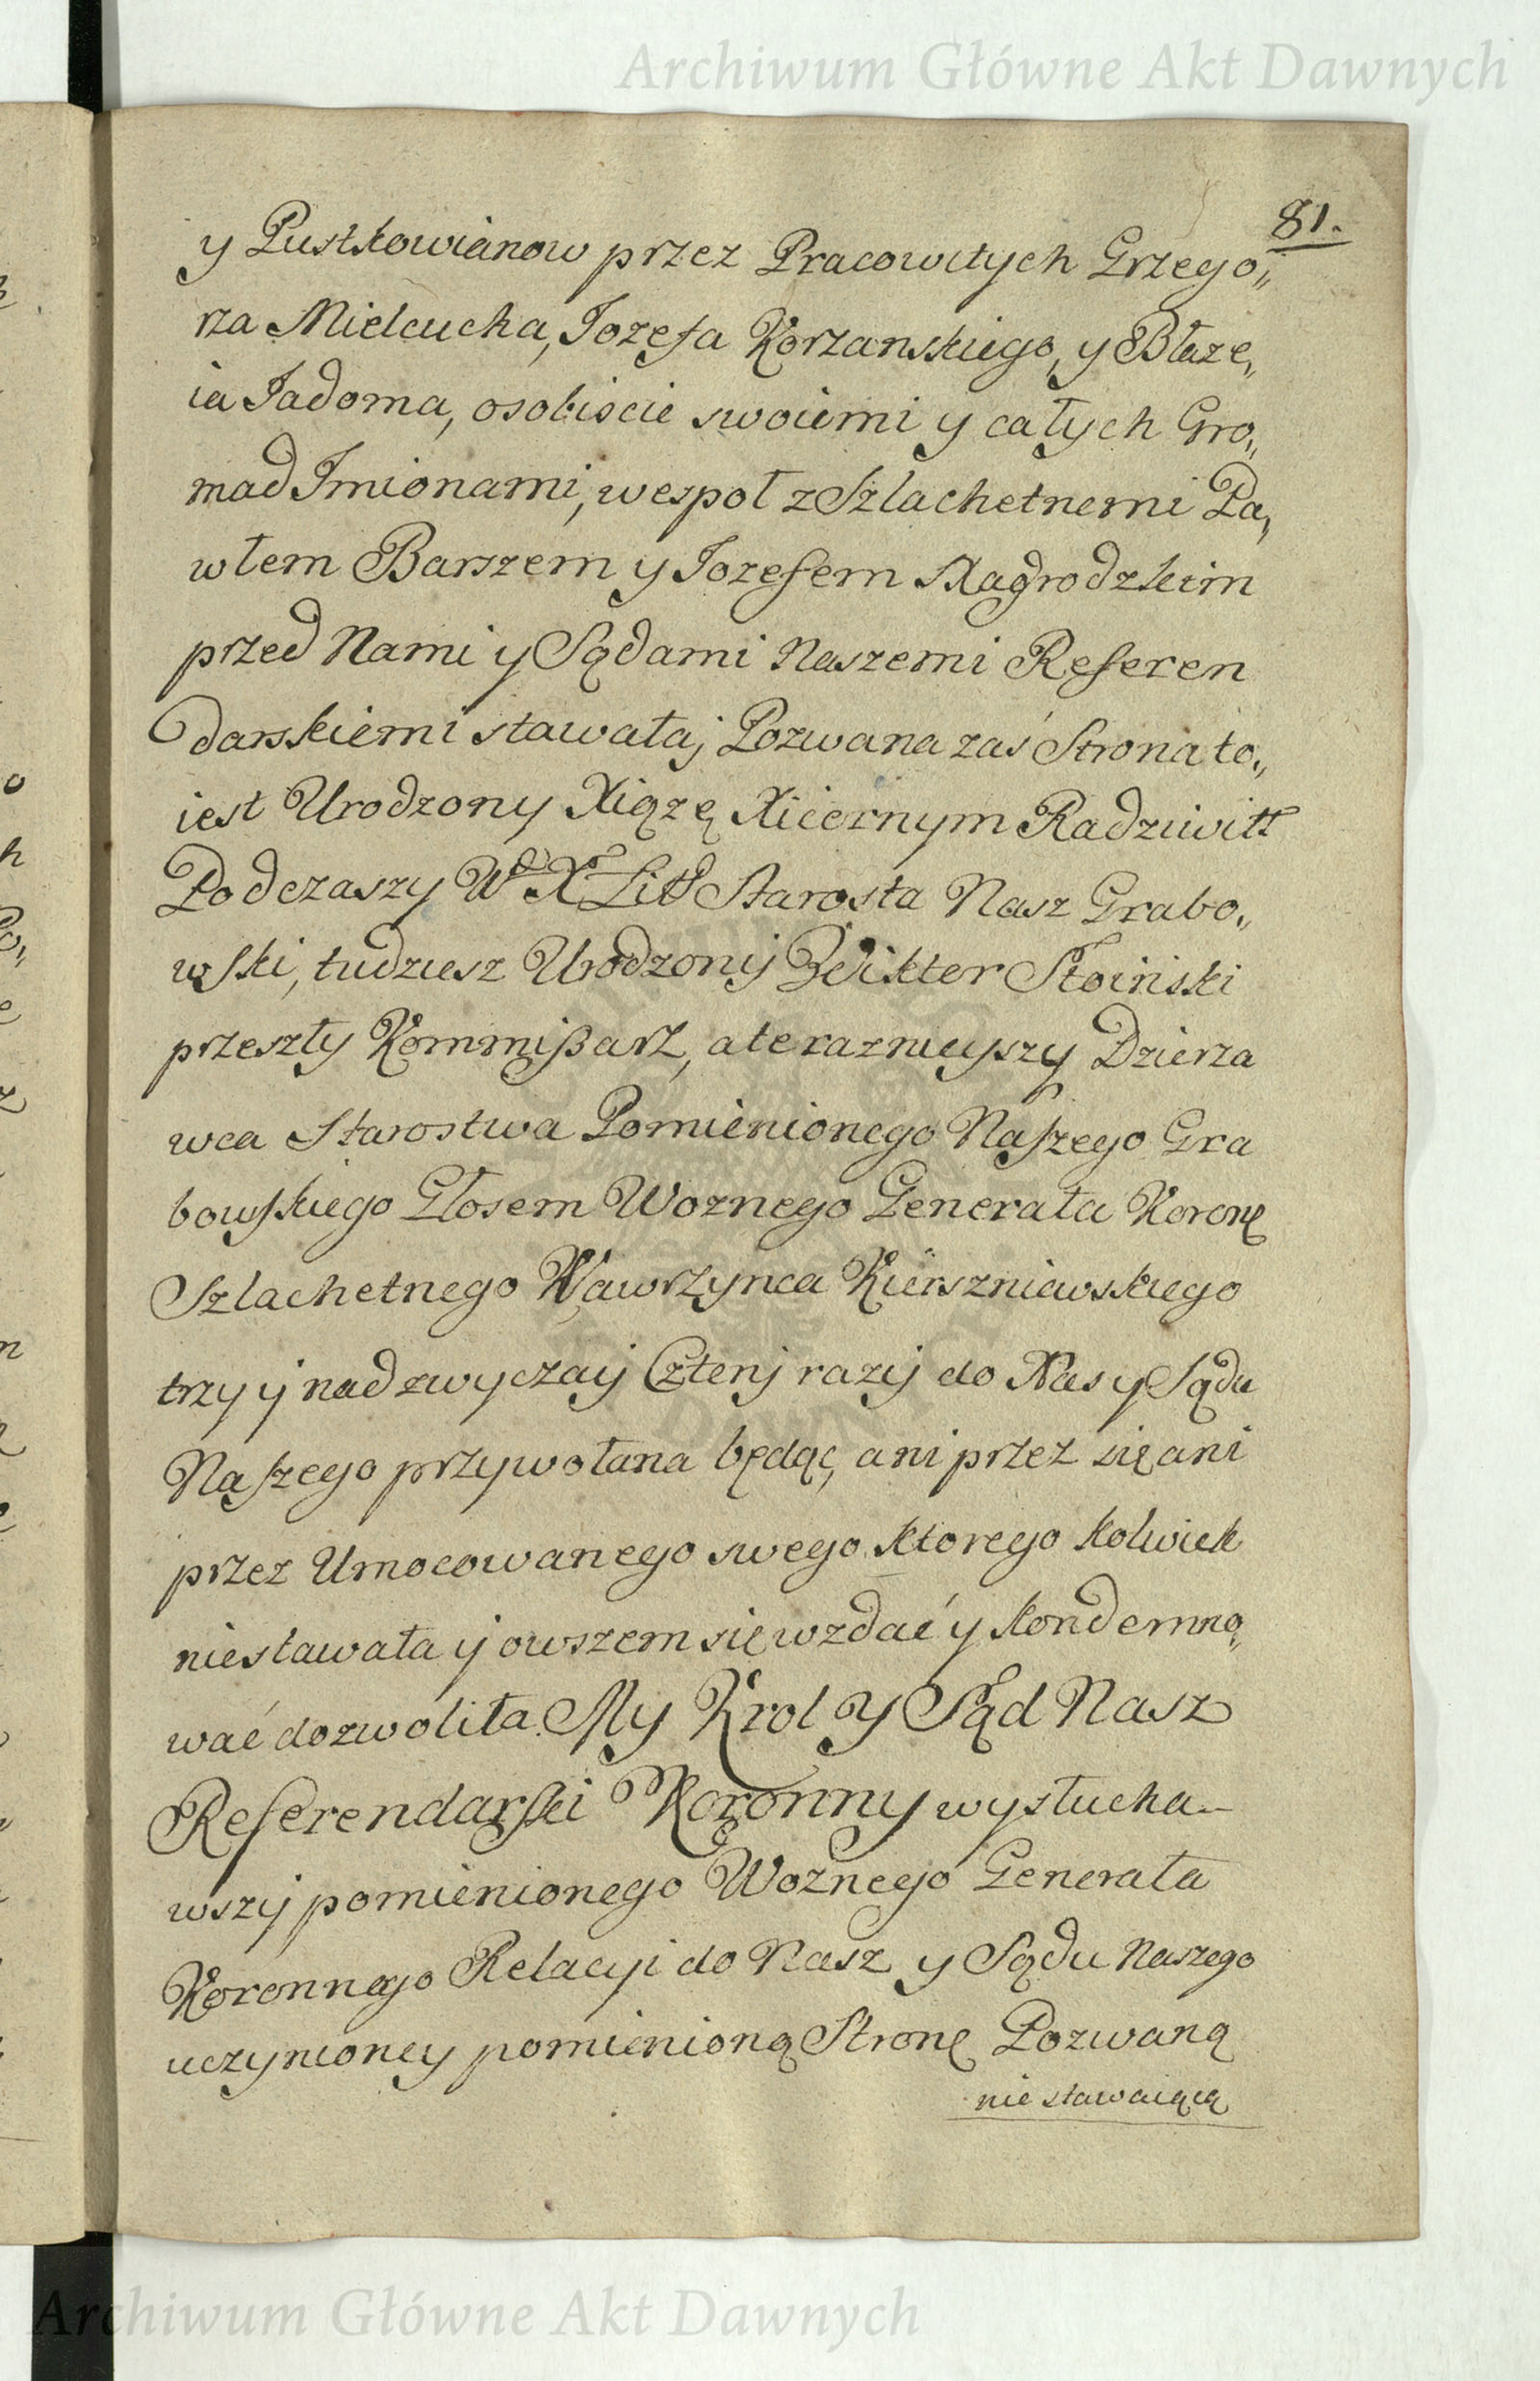 Archiwum Główne Akt Dawnych
81.
y Pustkowianow przez Pracowitych Grzego„
rza Mielcucha, Jozefa Korzanskiego, y Błaze„
ia Jadoma, osobiscie swoiemi y całych Gro„
mad Imionami, wespoł z Szlachetnemi Pa„
włem Barszem y Jozefem Nagrodzkim
przed Nami y Sądami Naszemi Referen
darskiemi stawała; Pozwana zaś Strona to„
iest Urodzony Xiąze Xiiernym Radziwiłł
Podczaszy W° X° Litt Starosta Nasz Grabo„
wski, tudziesz Urodzony Wiktor Stoiński
przeszły Kommißarz, a terazniejszy Dzierza
wca Starostwa Pomienionego Naszego Gra
bowskiego Głosem Woznego Generała Koronę
Szlachetnego Wawrzynca Kierszniewskiego
trzy y nad zwyczaij Czterij razij do Nas y Sądu
Naszego przywołana będąc, ani przez się ani
przez Umocowanego swego ktorego kolwiek
niestawała ij owszem się wzdać y kondemno„
wać dozwoliła. My Krol y Sąd Nasz
Referendarski Koronny wysłucha–
wszij pomienionego Woznego Generała
Koronnego Relacyi do Nasz y Sądu Naszego
uczynioney pomienioną Stronę Pozwaną
nie stawaiącą
Archiwum Główne Akt Dawnych